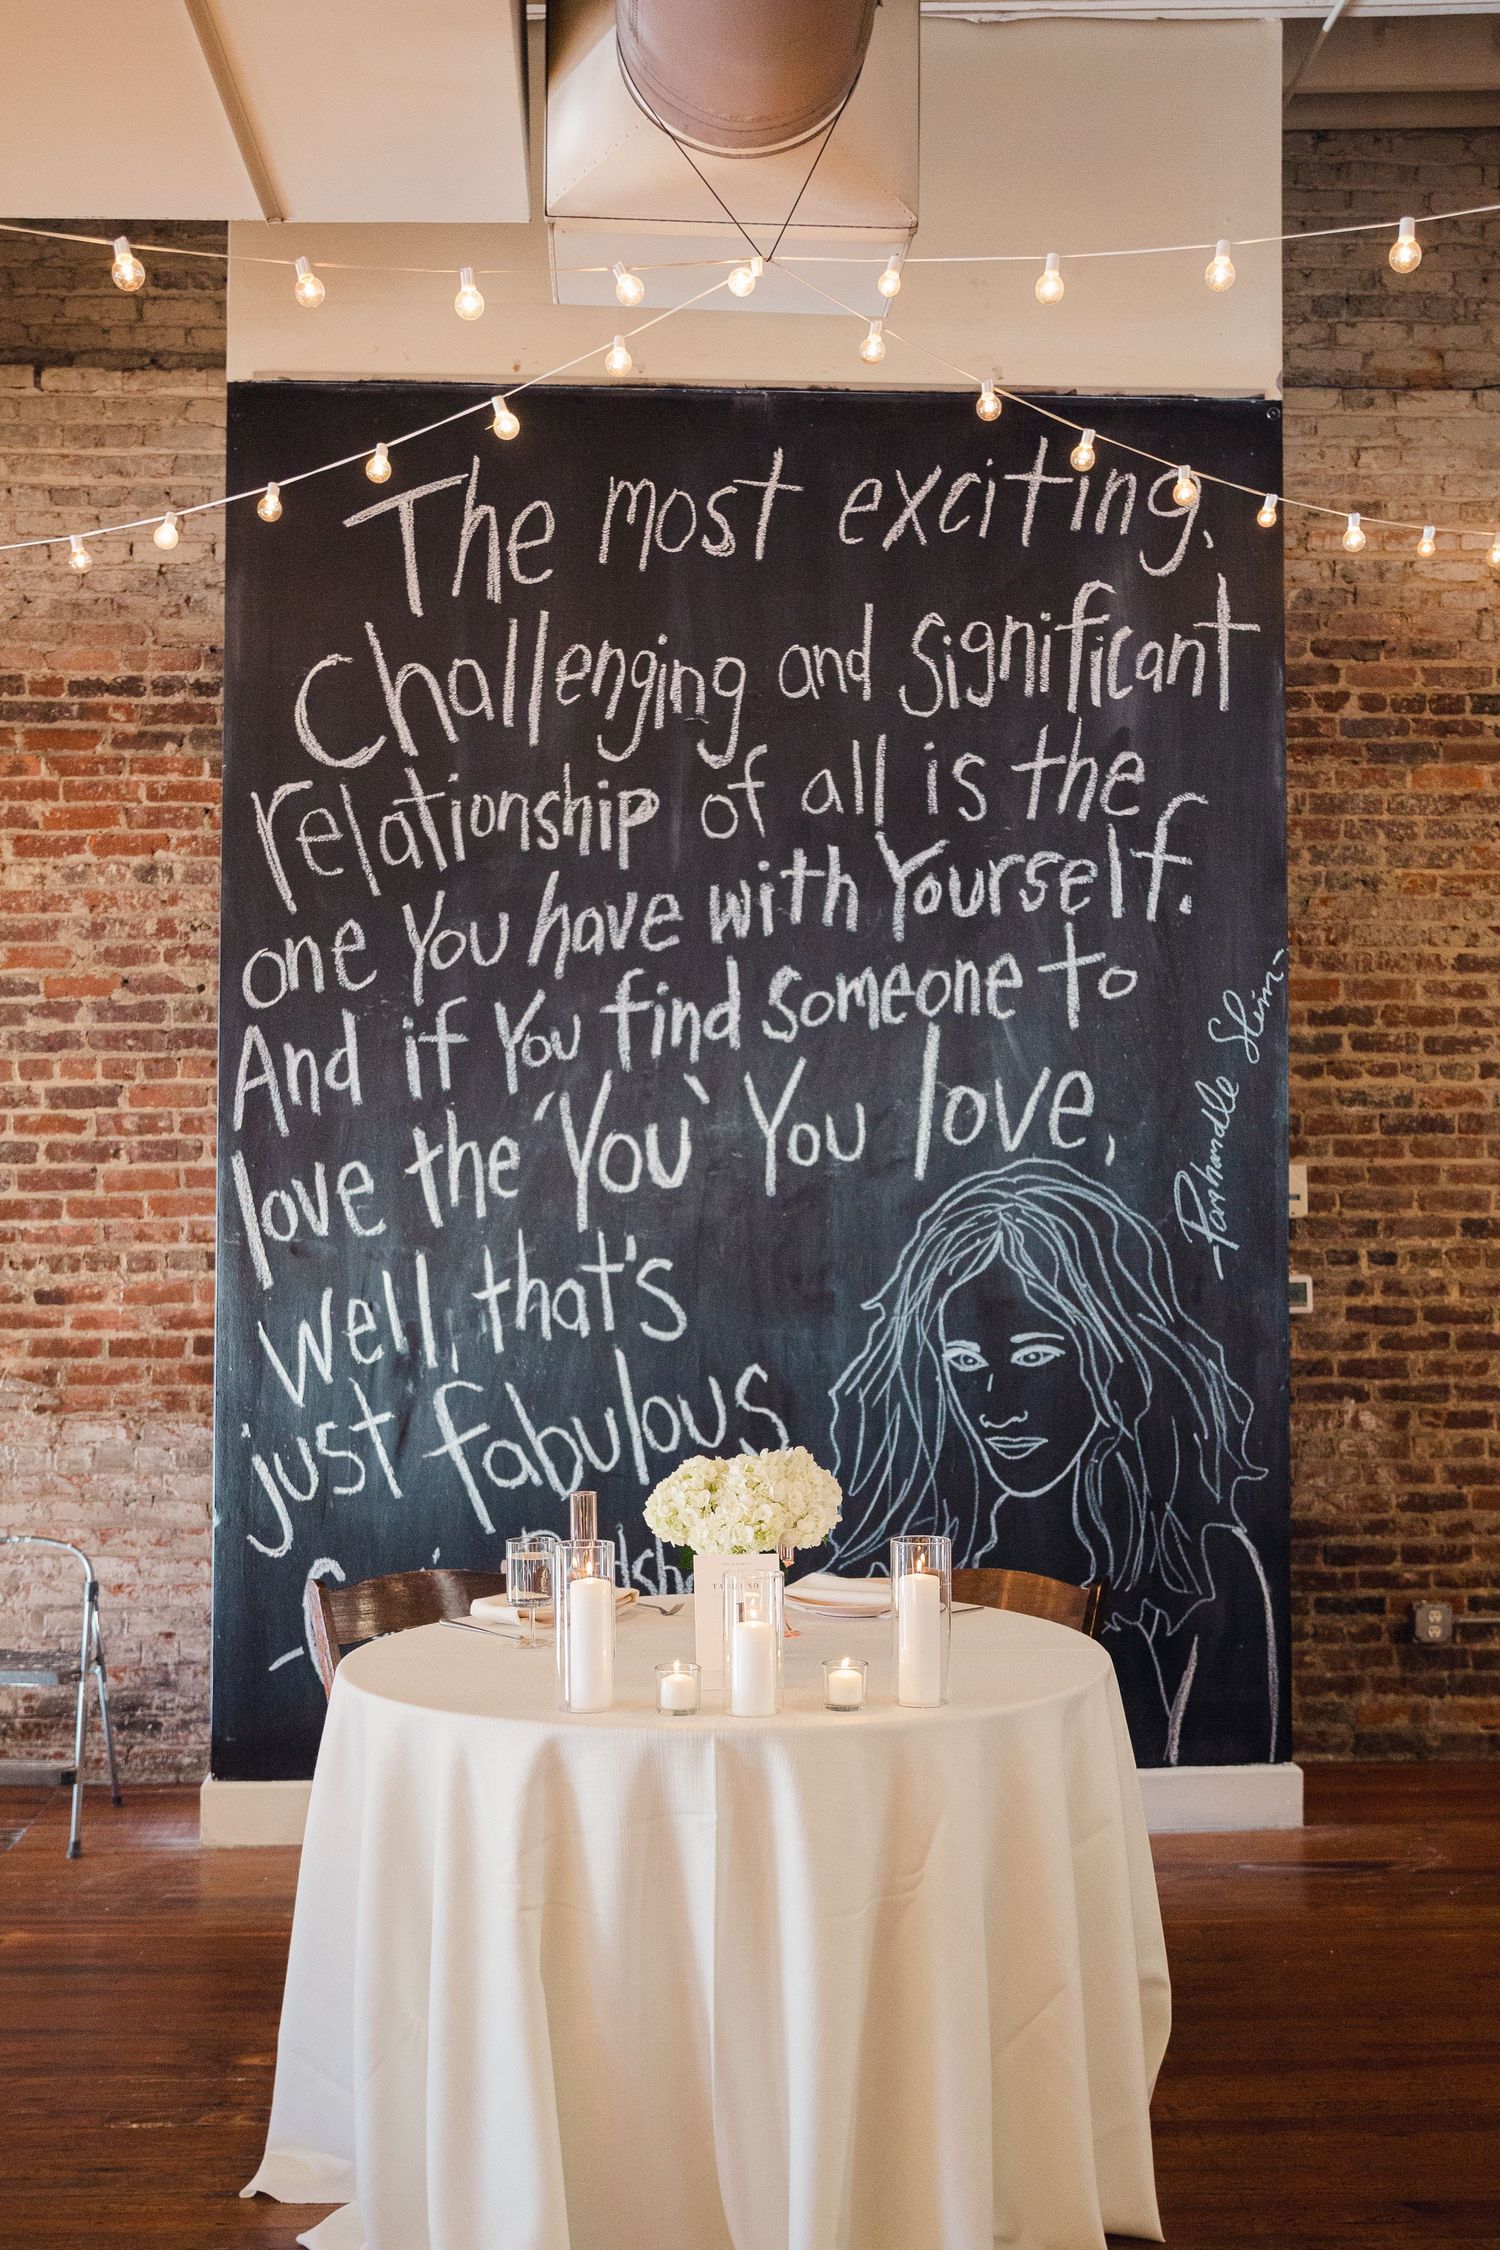 The most exciting,
Challenging and significant
relationship of all is the
one You have with Yourself.
And if You find someone to
love the 'You' You love,
Well, that's
just fabulous
-Panhandle Slim-